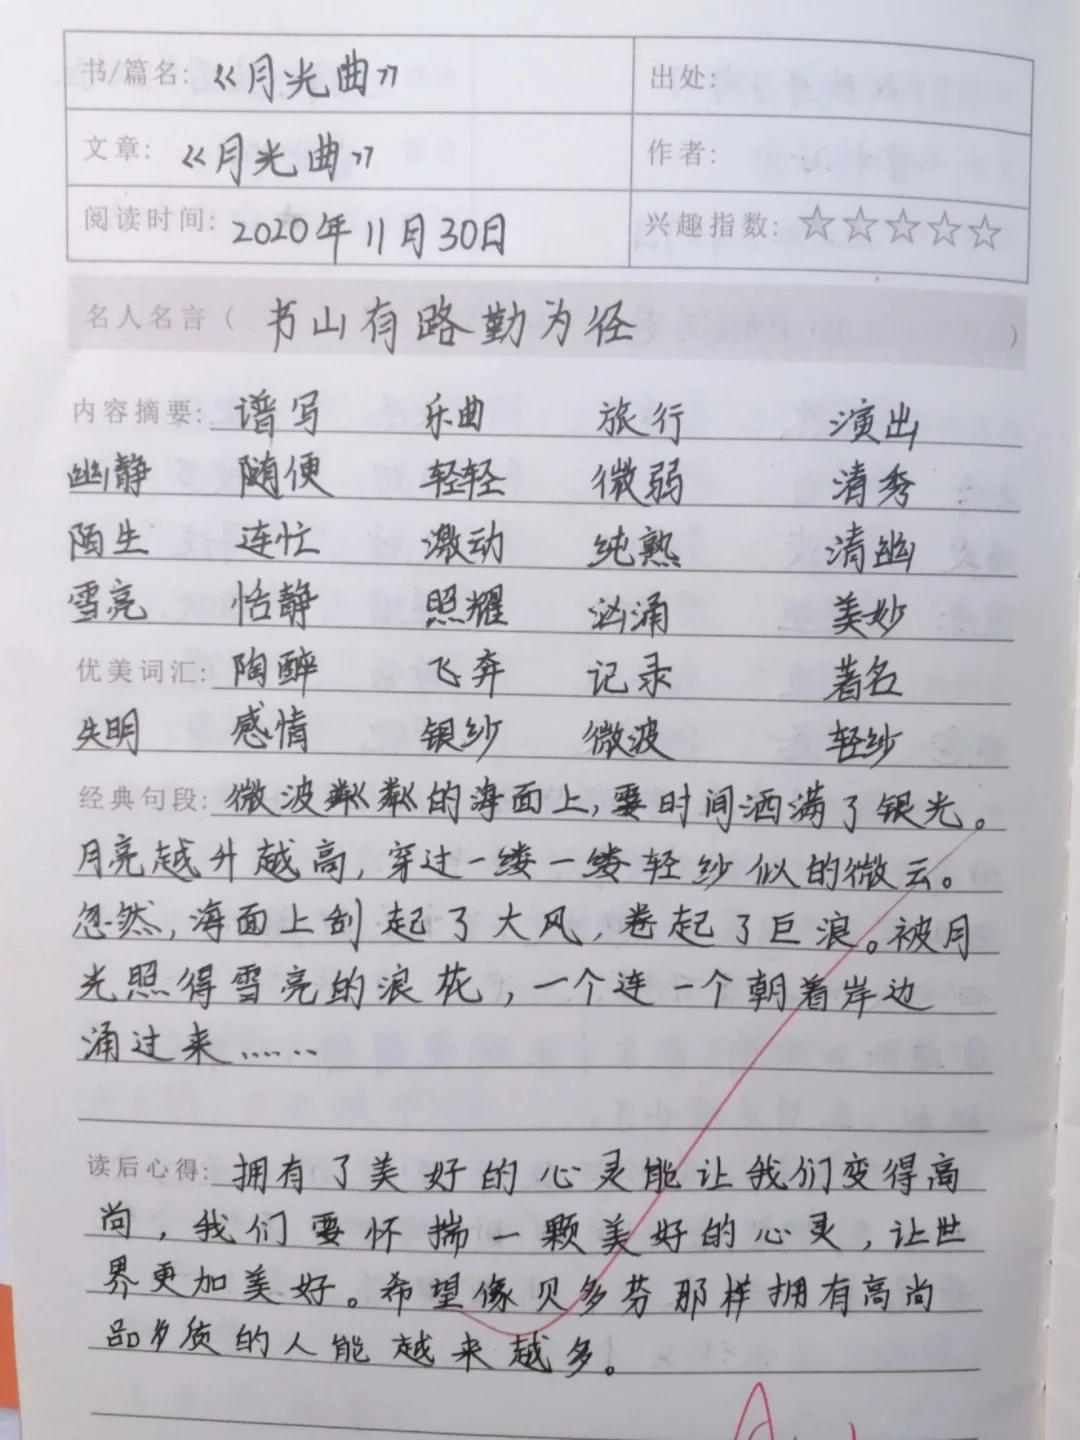 书/篇名: 《月光曲》 出处:
文章: 《月光曲》 作者:
阅读时间: 2020年11月30日 兴趣指数: ☆☆☆☆☆
名人名言( 书山有路勤为径 )
内容摘要: 谱写 乐曲 旅行 演出
幽静 随便 轻轻 微弱 清秀
陌生 连忙 激动 纯熟 清幽
雪亮 恬静 照耀 汹涌 美妙
优美词汇: 陶醉 飞奔 记录 著名
失明 感情 银纱 微波 轻纱
经典句段: 微波粼粼的海面上,霎时间洒满了银光。
月亮越升越高,穿过一缕一缕轻纱似的微云。
忽然,海面上刮起了大风,卷起了巨浪。被月
光照得雪亮的浪花,一个连一个朝着岸边
涌过来……
读后心得: 拥有了美好的心灵能让我们变得高
尚,我们要怀揣一颗美好的心灵,让世
界更加美好。希望像贝多芬那样拥有高尚
品质的人能越来越多。
A